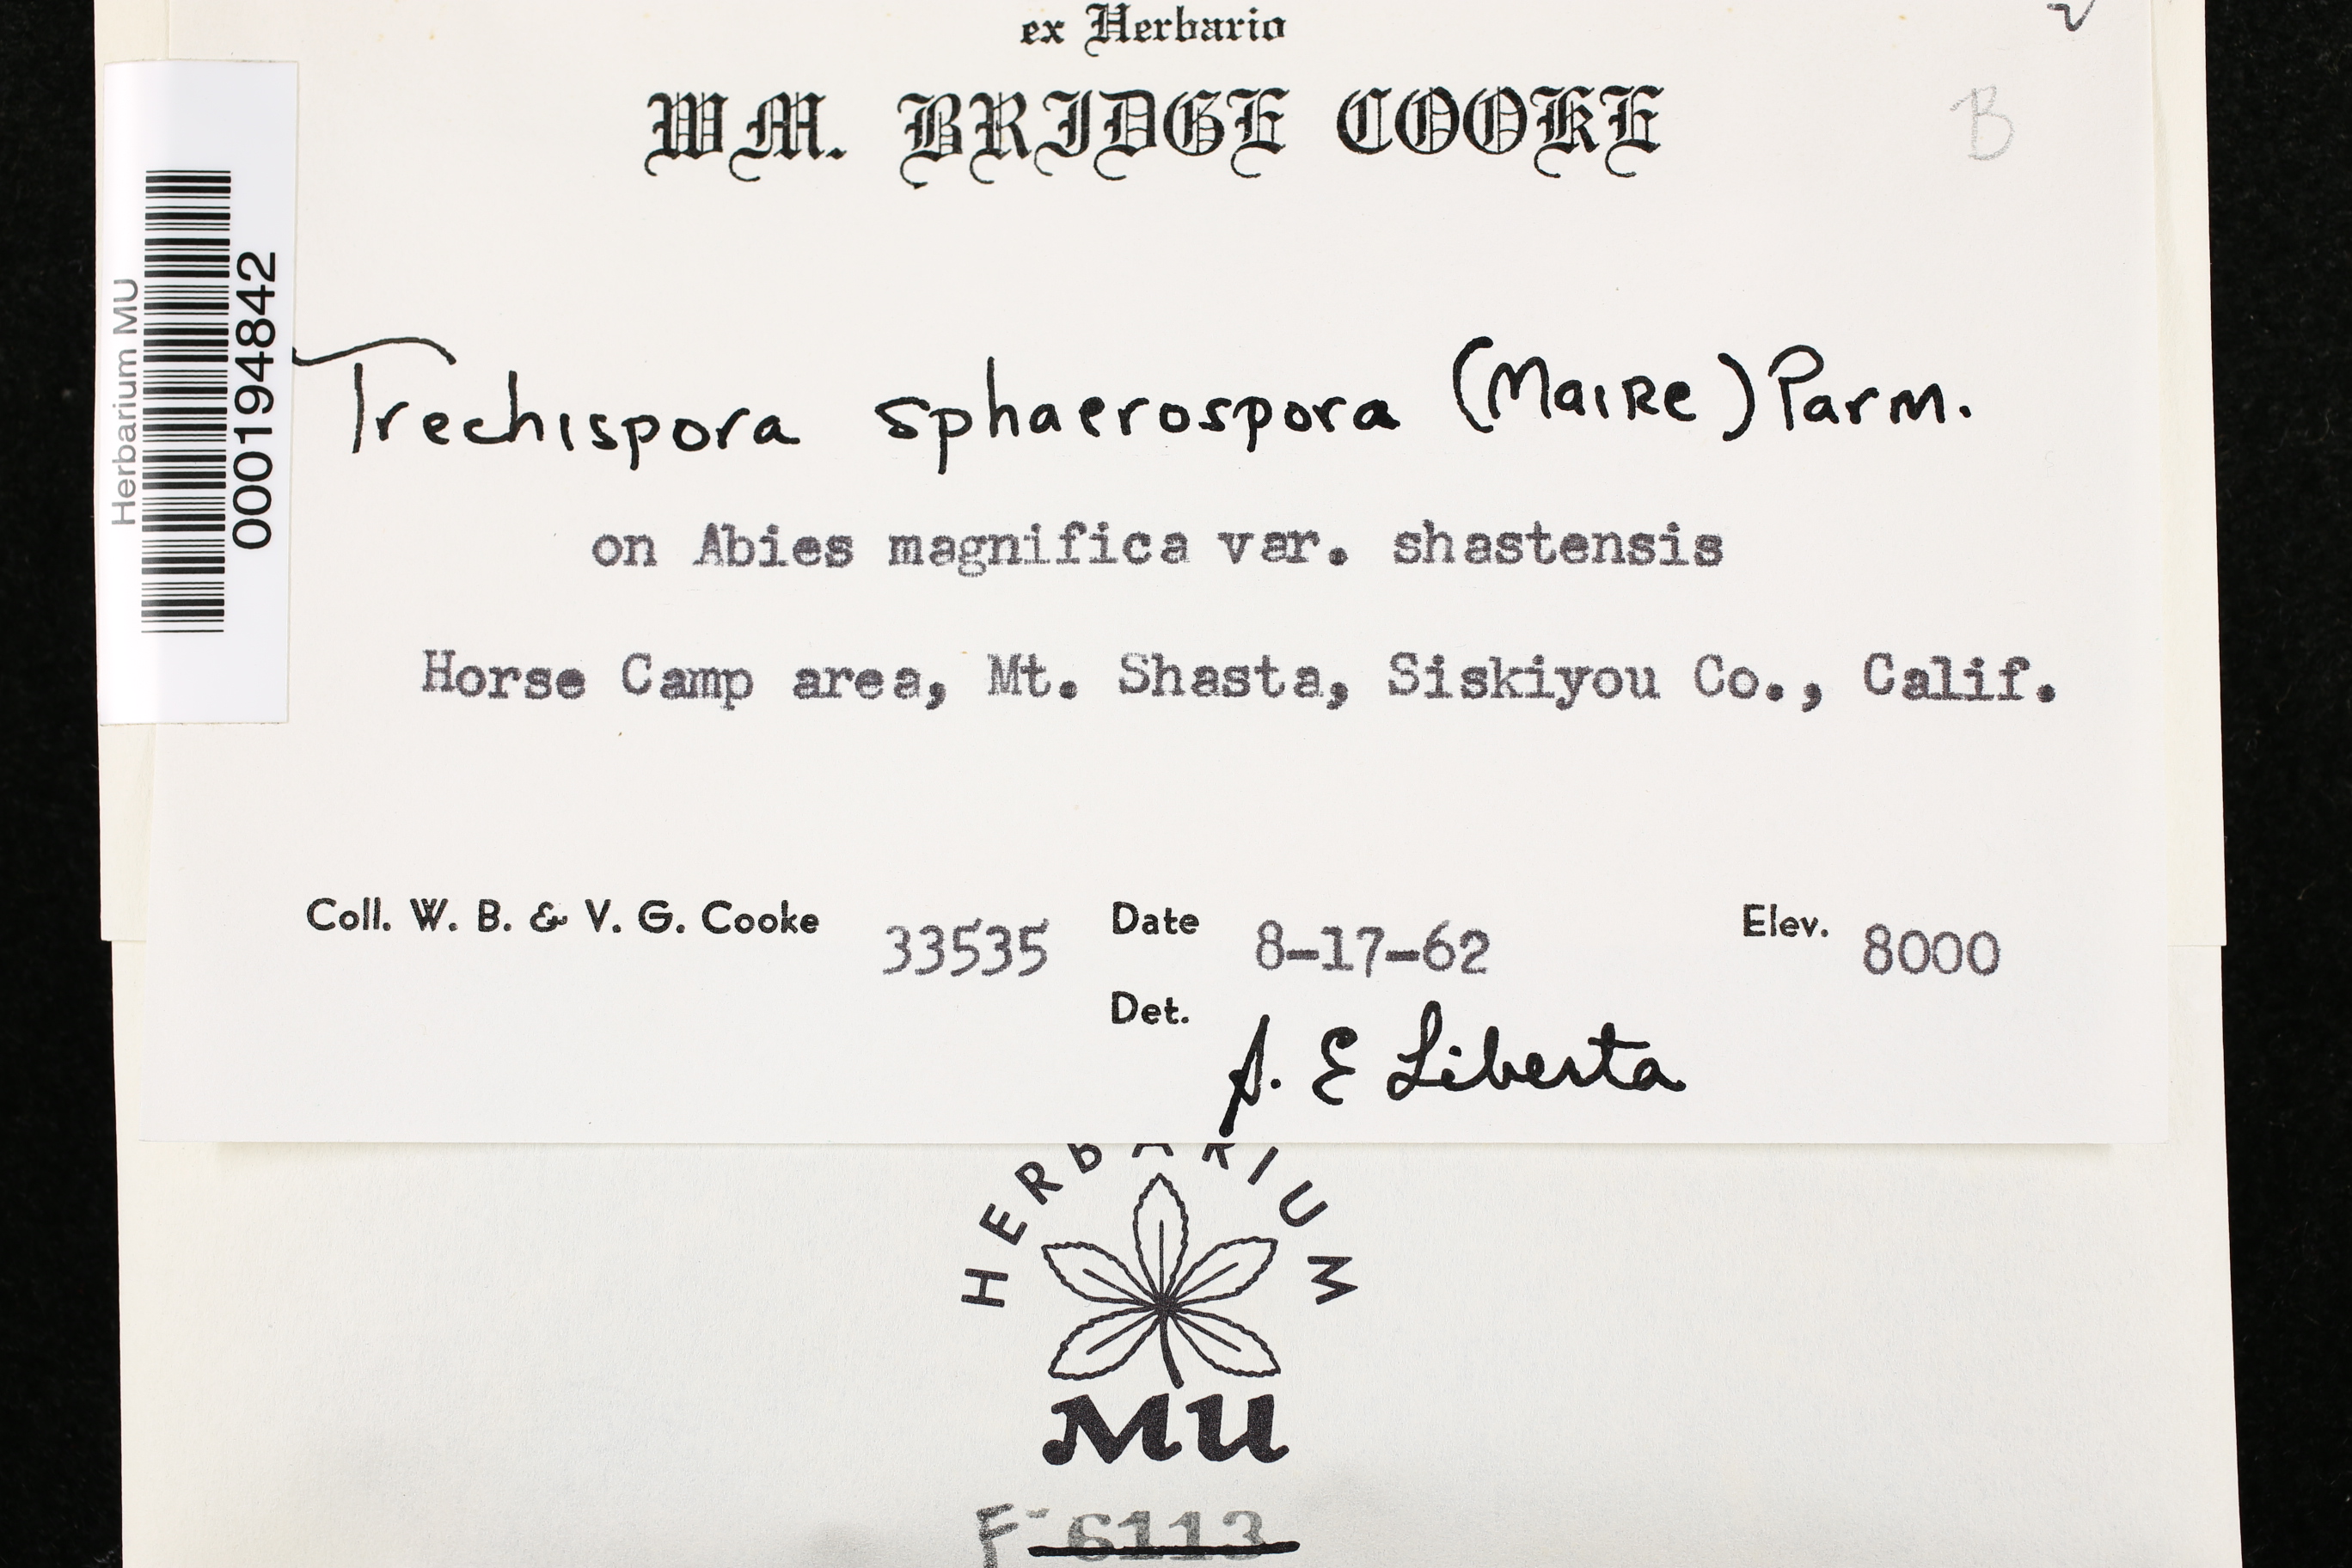 ex Herbario
WM. BRIDGE COOKE
B
Herbarium MU
000194842
Trechispora sphaerospora (Maire) Parm.
on Abies magnifica var. shastensis
Horse Camp area, Mt. Shasta, Siskiyou Co., Calif.
Coll. W. B. & V. G. Cooke 33535 Date 8-17-62 Elev. 8000
Det. A. E Liberta
HERBARIUM
MU
F-6113